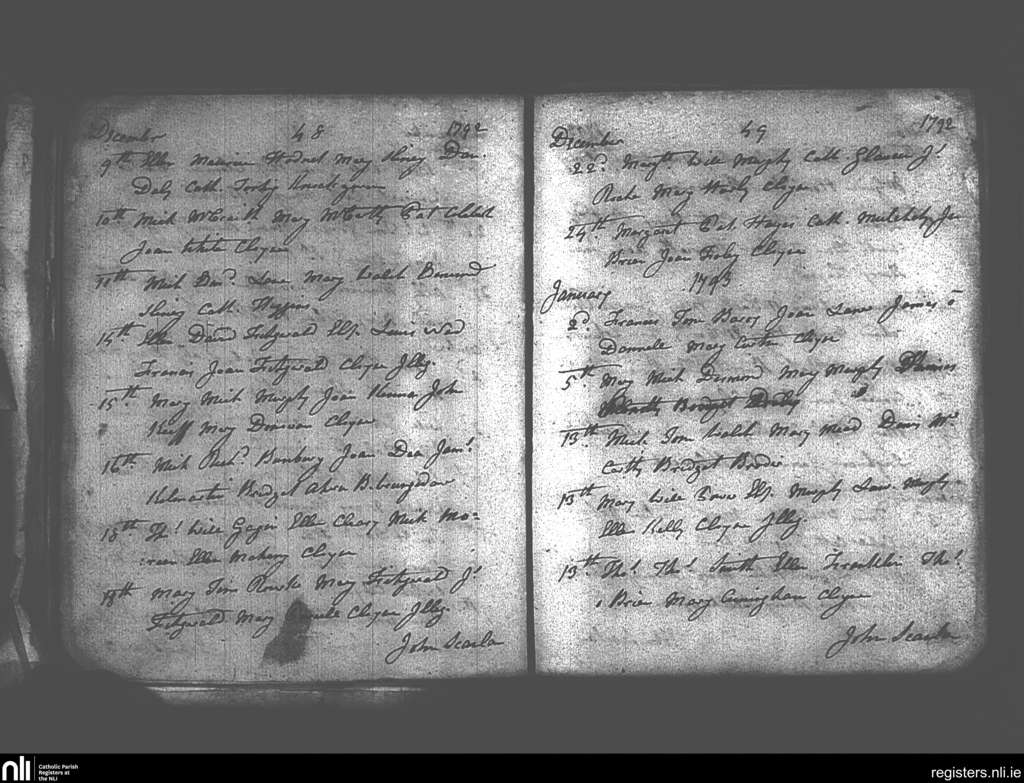 December 48 1792
9th Ellen Maurice Hodnet Mary Hiney Dan.
Daly Cath.
10th Mich McCraith Mary McCarthy Pat
Joan White Cloyne
11th Mich Dan. Lane Mary Walsh
Hiney Cath. Higgins
15th Ellen David Fitzgerald Elis. Lewis
Francis Joan Fitzgerald Cloyne Illeg.
15th Mary Mich Murphy Joan John
Keeff Mary Donovan Cloyne
16th Mich Rich. Bunbury Joan Dea
Kilmartin Bridget Ahern
18th Tho. Will Ellen Cleary Mich Mo=
Ellen Mahony Cloyne
18th Mary Tim Rourke Mary Fitzgerald J.
Fitzgerald Mary Cloyne Illeg.
John Scanlan
December 49 1792
22d. Margt Will Murphy Cath Glavin J.
Roche Mary Cloyne
24th Margaret Pat. Hayes Cath. Mulcahy
Brien Joan Foley Cloyne
1793
January
2d. Francis Tom Barry Joan Lane James O
Donnele Mary Carter Cloyne
5th Mary Mich Desmond Mary Murphy
Bridget
13th Mich Tom Walsh Mary Mead Denis Mc
Carthy Bridget
13th Mary Will Power Elis. Murphy Law. Murphy
Ellen Kelly Cloyne Illeg.
19th Tho. Tho. Smith Ellen Franklin Tho.
Brien Mary Cuningham Cloyne
John Scanlan
nli Catholic Parish
Registers at
the NLI
registers.nli.ie